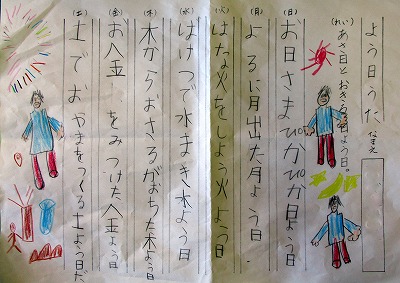 よう日うた なまえ
(れい) あさ日とおきる日よう日。
(日) お日さまぴかぴか日よう日
(月) よるに月出た月よう日.
(火) はな火をしよう火よう日
(水) ばけつで水まき水よう日
(木) 木からおさるがおちた木よう日
(金) お金をみつけた金よう日
(土) 土でおやまをつくる土よう日だ